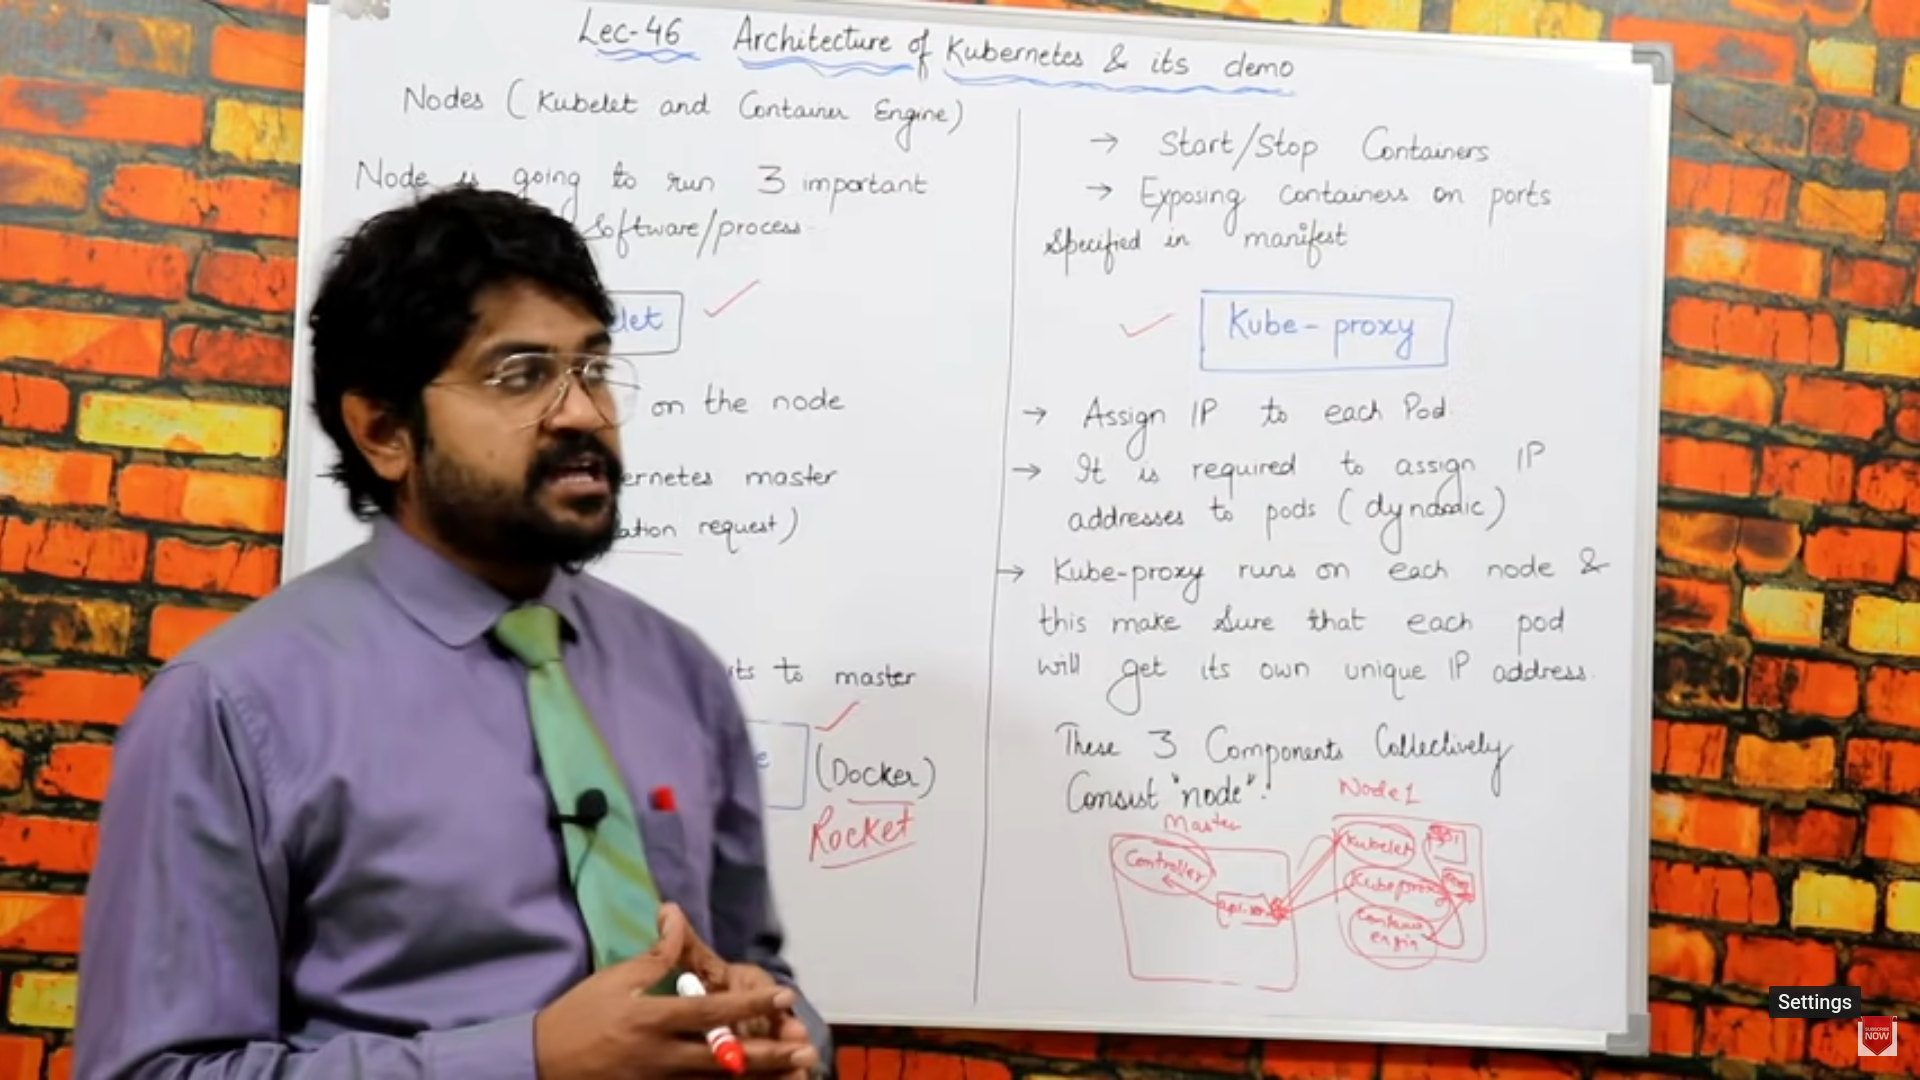 Lec-46 Architecture of Kubernetes & its demo
Nodes (Kubelet and Container Engine)
Node is going to run 3 important
software/process
let
on the node
ernetes master
ation request)
its to master
e
(Docker)
Rocket
→ Start/Stop Containers
→ Exposing containers on ports
Specified in manifest
Kube-proxy
→ Assign IP to each Pod
→ It is required to assign IP
addresses to pods (dynamic)
→ Kube-proxy runs on each node &
this make sure that each pod
will get its own unique IP address.
These 3 Components Collectively
Consist "node".
Master
Node1
Controller
Kubelet
Kubeproxy
Settings
SUBSCRIBE
NOW